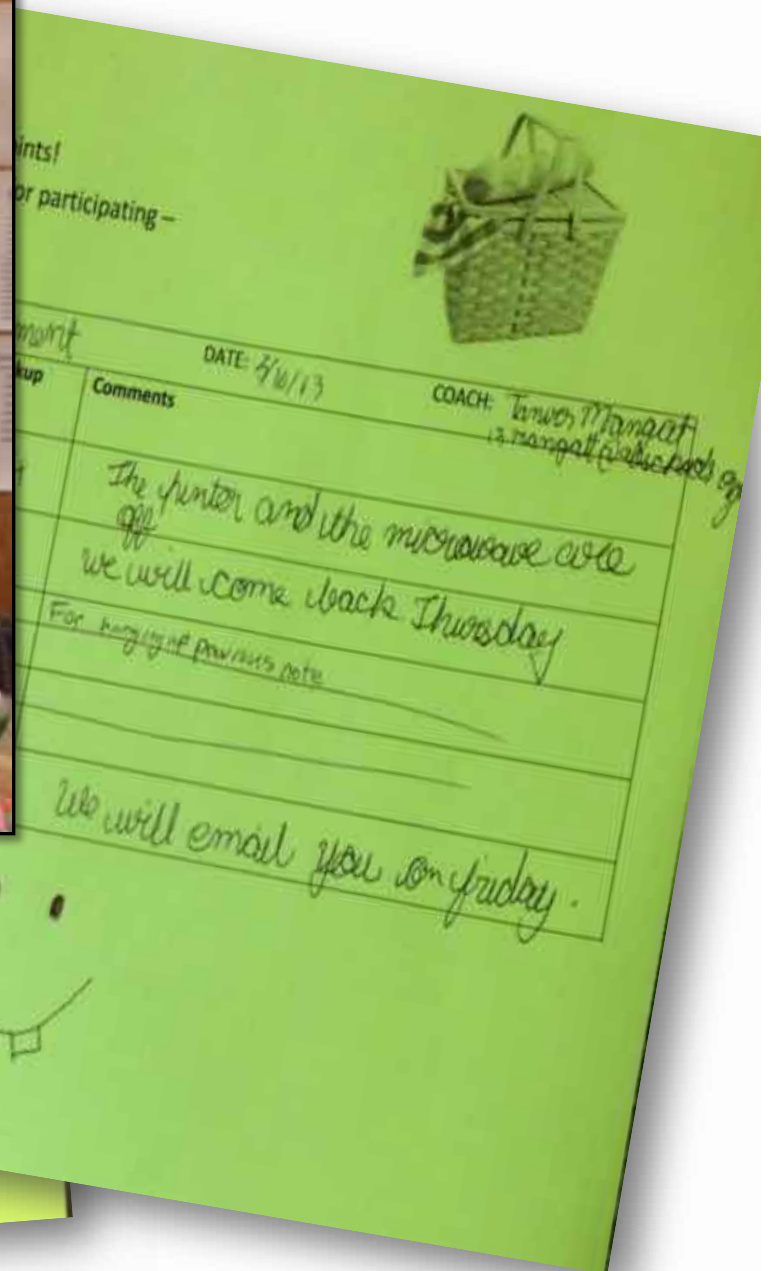 ints!
or participating –
ment
DATE: 3/16/13
COACH: Mangat
kup
Comments
The printer and the microwave are
off
we will come back Thursday
For hanging of previous note
We will email you on friday.